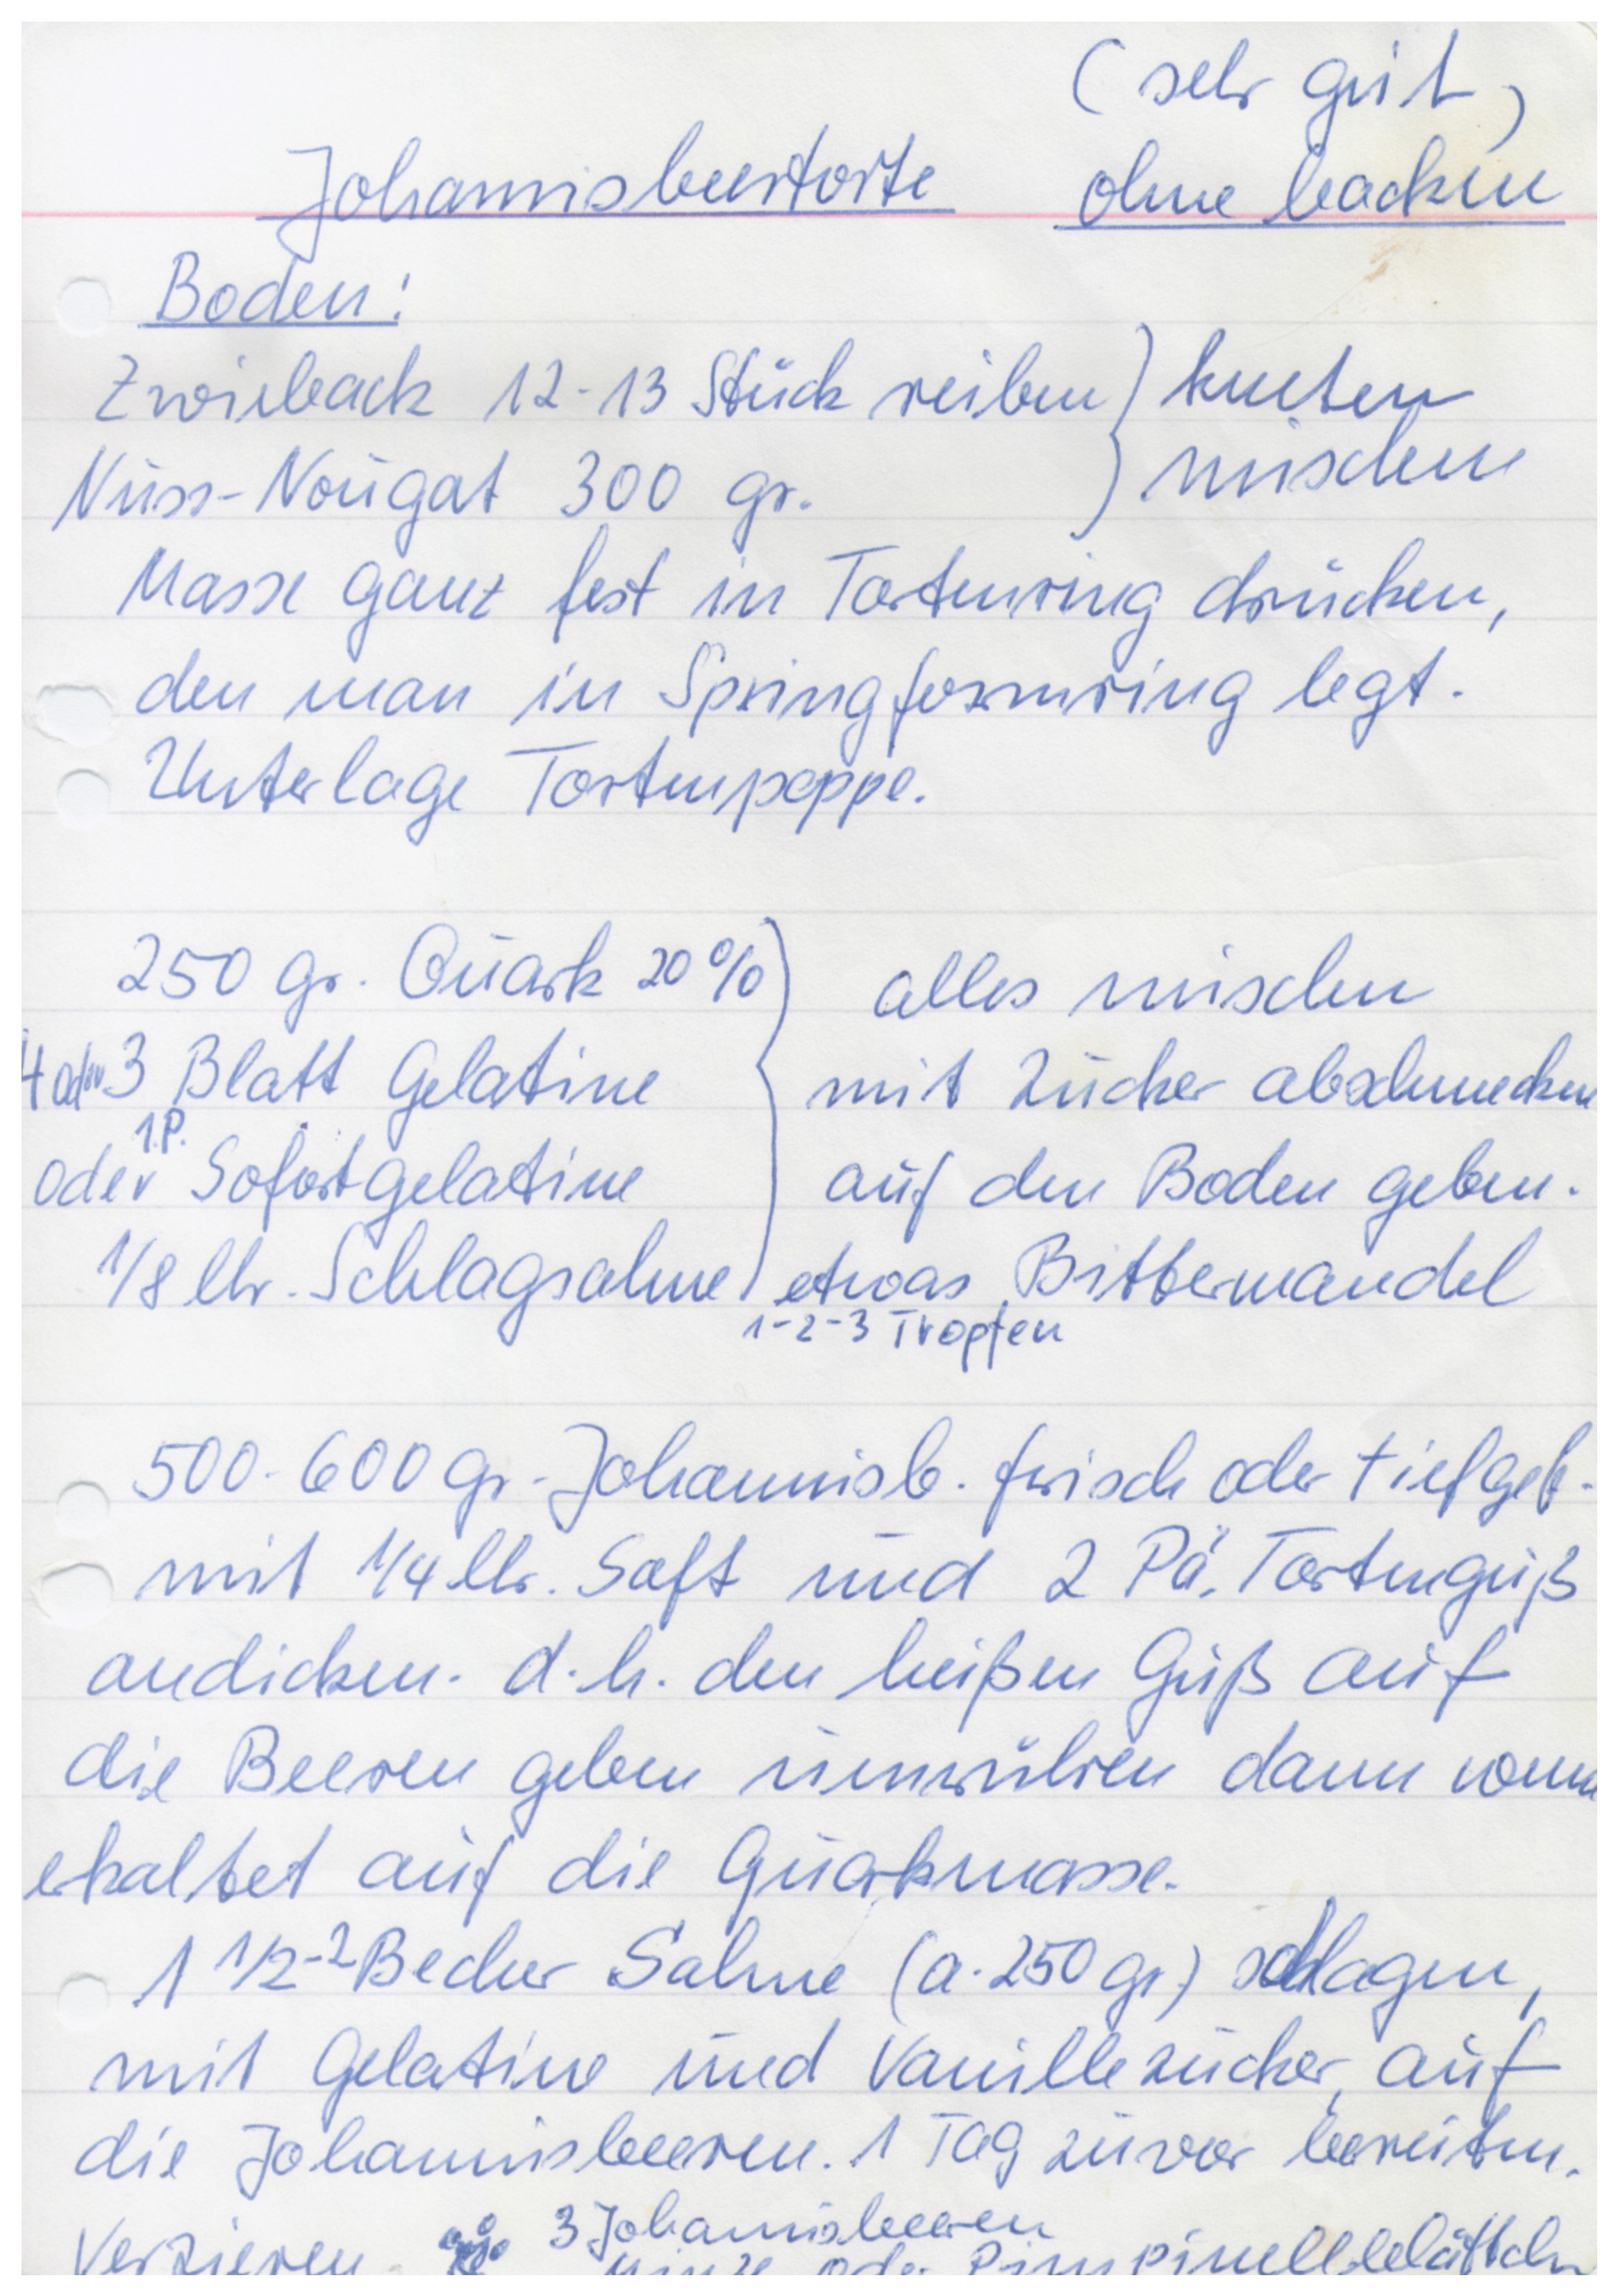 (sehr gut)
Johannisbeertorte ohne backen
Boden:
Zwieback 12-13 Stück reiben } kneten
Nuss-Nougat 300 gr. } mischen
Masse ganz fest in Tortenring drücken,
den man in Springformring legt.
Unterlage Tortenpappe.
250 gr. Quark 20% } alles mischen
4 oder 3 Blatt Gelatine mit Zucker abschmecken
1.P.
oder Sofortgelatine auf den Boden geben.
1/8 ltr. Schlagsahne etwas Bittermandel
1-2-3 Tropfen
500-600 gr. Johannisb. frisch oder tiefgef.
mit 1/4 ltr. Saft und 2 Pä. Tortenguß
andicken. d.h. den heißen Guß auf
die Beeren geben umrühren dann wenn
erkaltet auf die Quarkmasse.
1 1/2-2 Becher Sahne (a. 250 gr.) schlagen,
mit Gelatine und Vanillezucker, auf
die Johannisbeeren. 1 Tag zuvor bereiten.
3 Johannisbeeren
Verzieren Minze oder Pimpinellblättchen